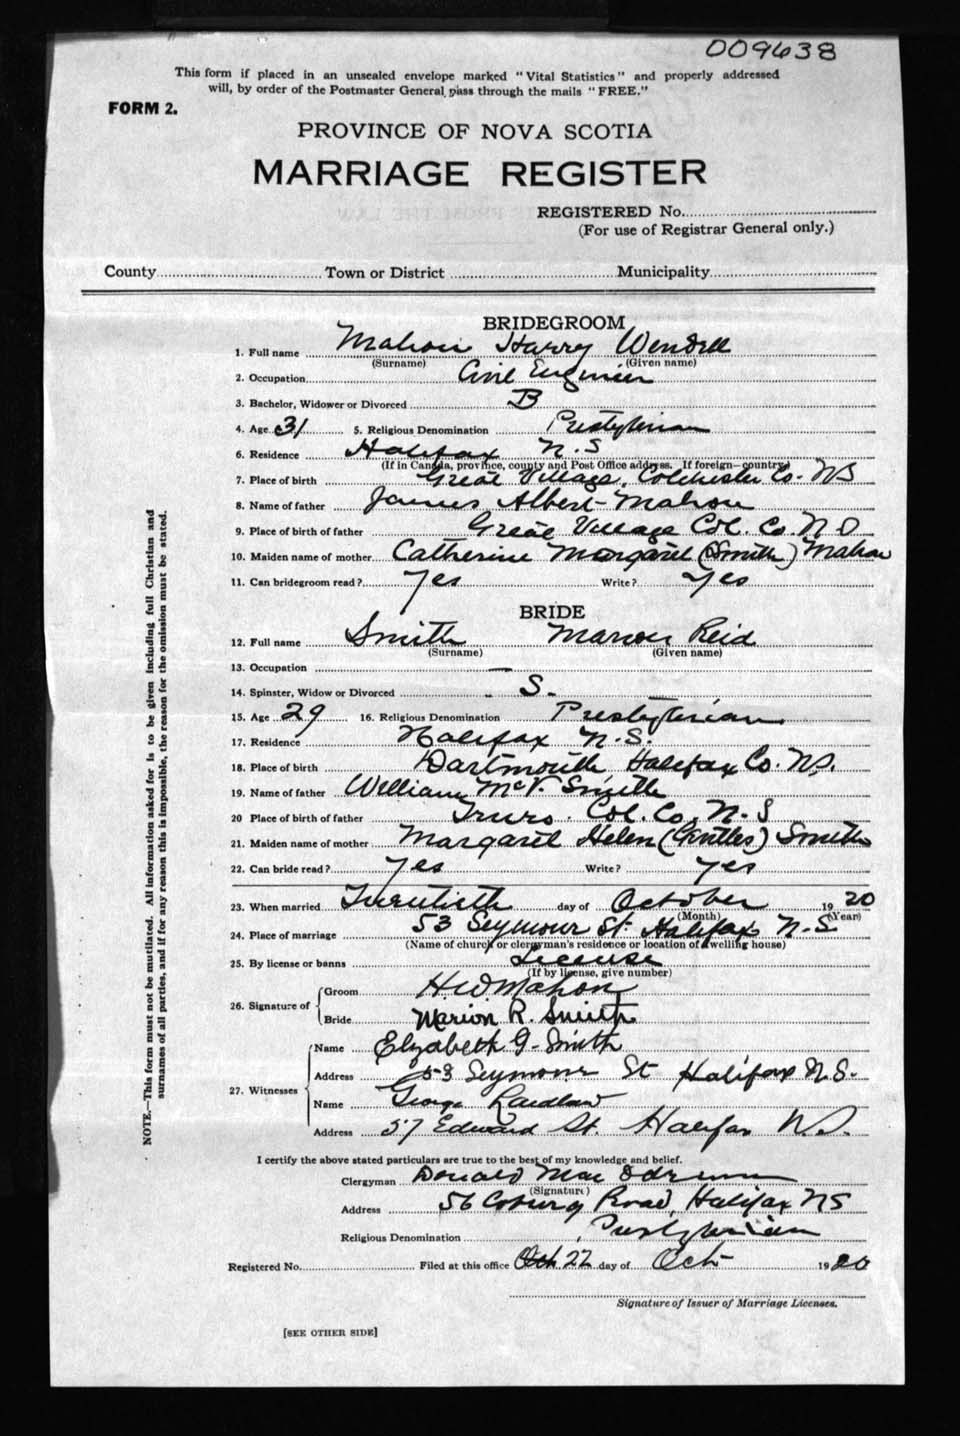 009638
This form if placed in an unsealed envelope marked "Vital Statistics" and properly addressed
will, by order of the Postmaster General pass through the mails "FREE."
FORM 2.
PROVINCE OF NOVA SCOTIA
MARRIAGE REGISTER
REGISTERED No.
(For use of Registrar General only.)
County Town or District Municipality
BRIDEGROOM
1. Full name Mahon Harry Wendell
(Surname) (Given name)
2. Occupation Civil Engineer
3. Bachelor, Widower or Divorced B
4. Age 31 5. Religious Denomination Presbyterian
6. Residence Halifax N.S
(If in Canada, province, county and Post Office address. If foreign—country)
7. Place of birth Great Village, Colchester Co. NS
8. Name of father James Albert Mahon
9. Place of birth of father Great Village Col. Co. N S
10. Maiden name of mother Catherine Margaret (Smith) Mahon
11. Can bridegroom read? Yes Write? Yes
BRIDE
12. Full name Smith Marion Reid
(Surname) (Given name)
13. Occupation —
14. Spinster, Widow or Divorced S.
15. Age 29 16. Religious Denomination Presbyterian
17. Residence Halifax N.S.
18. Place of birth Dartmouth, Halifax Co. N.S.
19. Name of father William McV. Smith
20 Place of birth of father Truro. Col. Co, N.S
21. Maiden name of mother Margaret Helen (Gentles) Smith
22. Can bride read? Yes Write? Yes
23. When married Twentieth day of October 1920
(Month) (Year)
24. Place of marriage 53 Seymour St. Halifax N.S.
(Name of church or clergyman's residence or location of dwelling house)
25. By license or banns License
(If by license, give number)
26. Signature of Groom H.W. Mahon
Bride Marion R. Smith
27. Witnesses Name Elizabeth G. Smith
Address 53 Seymour St Halifax N.S.
Name George Laidlaw
Address 57 Edward St. Halifax N.S.
I certify the above stated particulars are true to the best of my knowledge and belief.
Clergyman Donald Mac Odrum
(Signature)
Address 56 Coburg Road, Halifax NS
Religious Denomination Presbyterian
Registered No. Filed at this office Oct. 22 day of Oct 1920
Signature of Issuer of Marriage Licenses.
[SEE OTHER SIDE]
NOTE.—This form must not be mutilated. All information asked for is to be given including full Christian and
surnames of all parties, and if for any reason this is impossible, the reason for the omission must be stated.